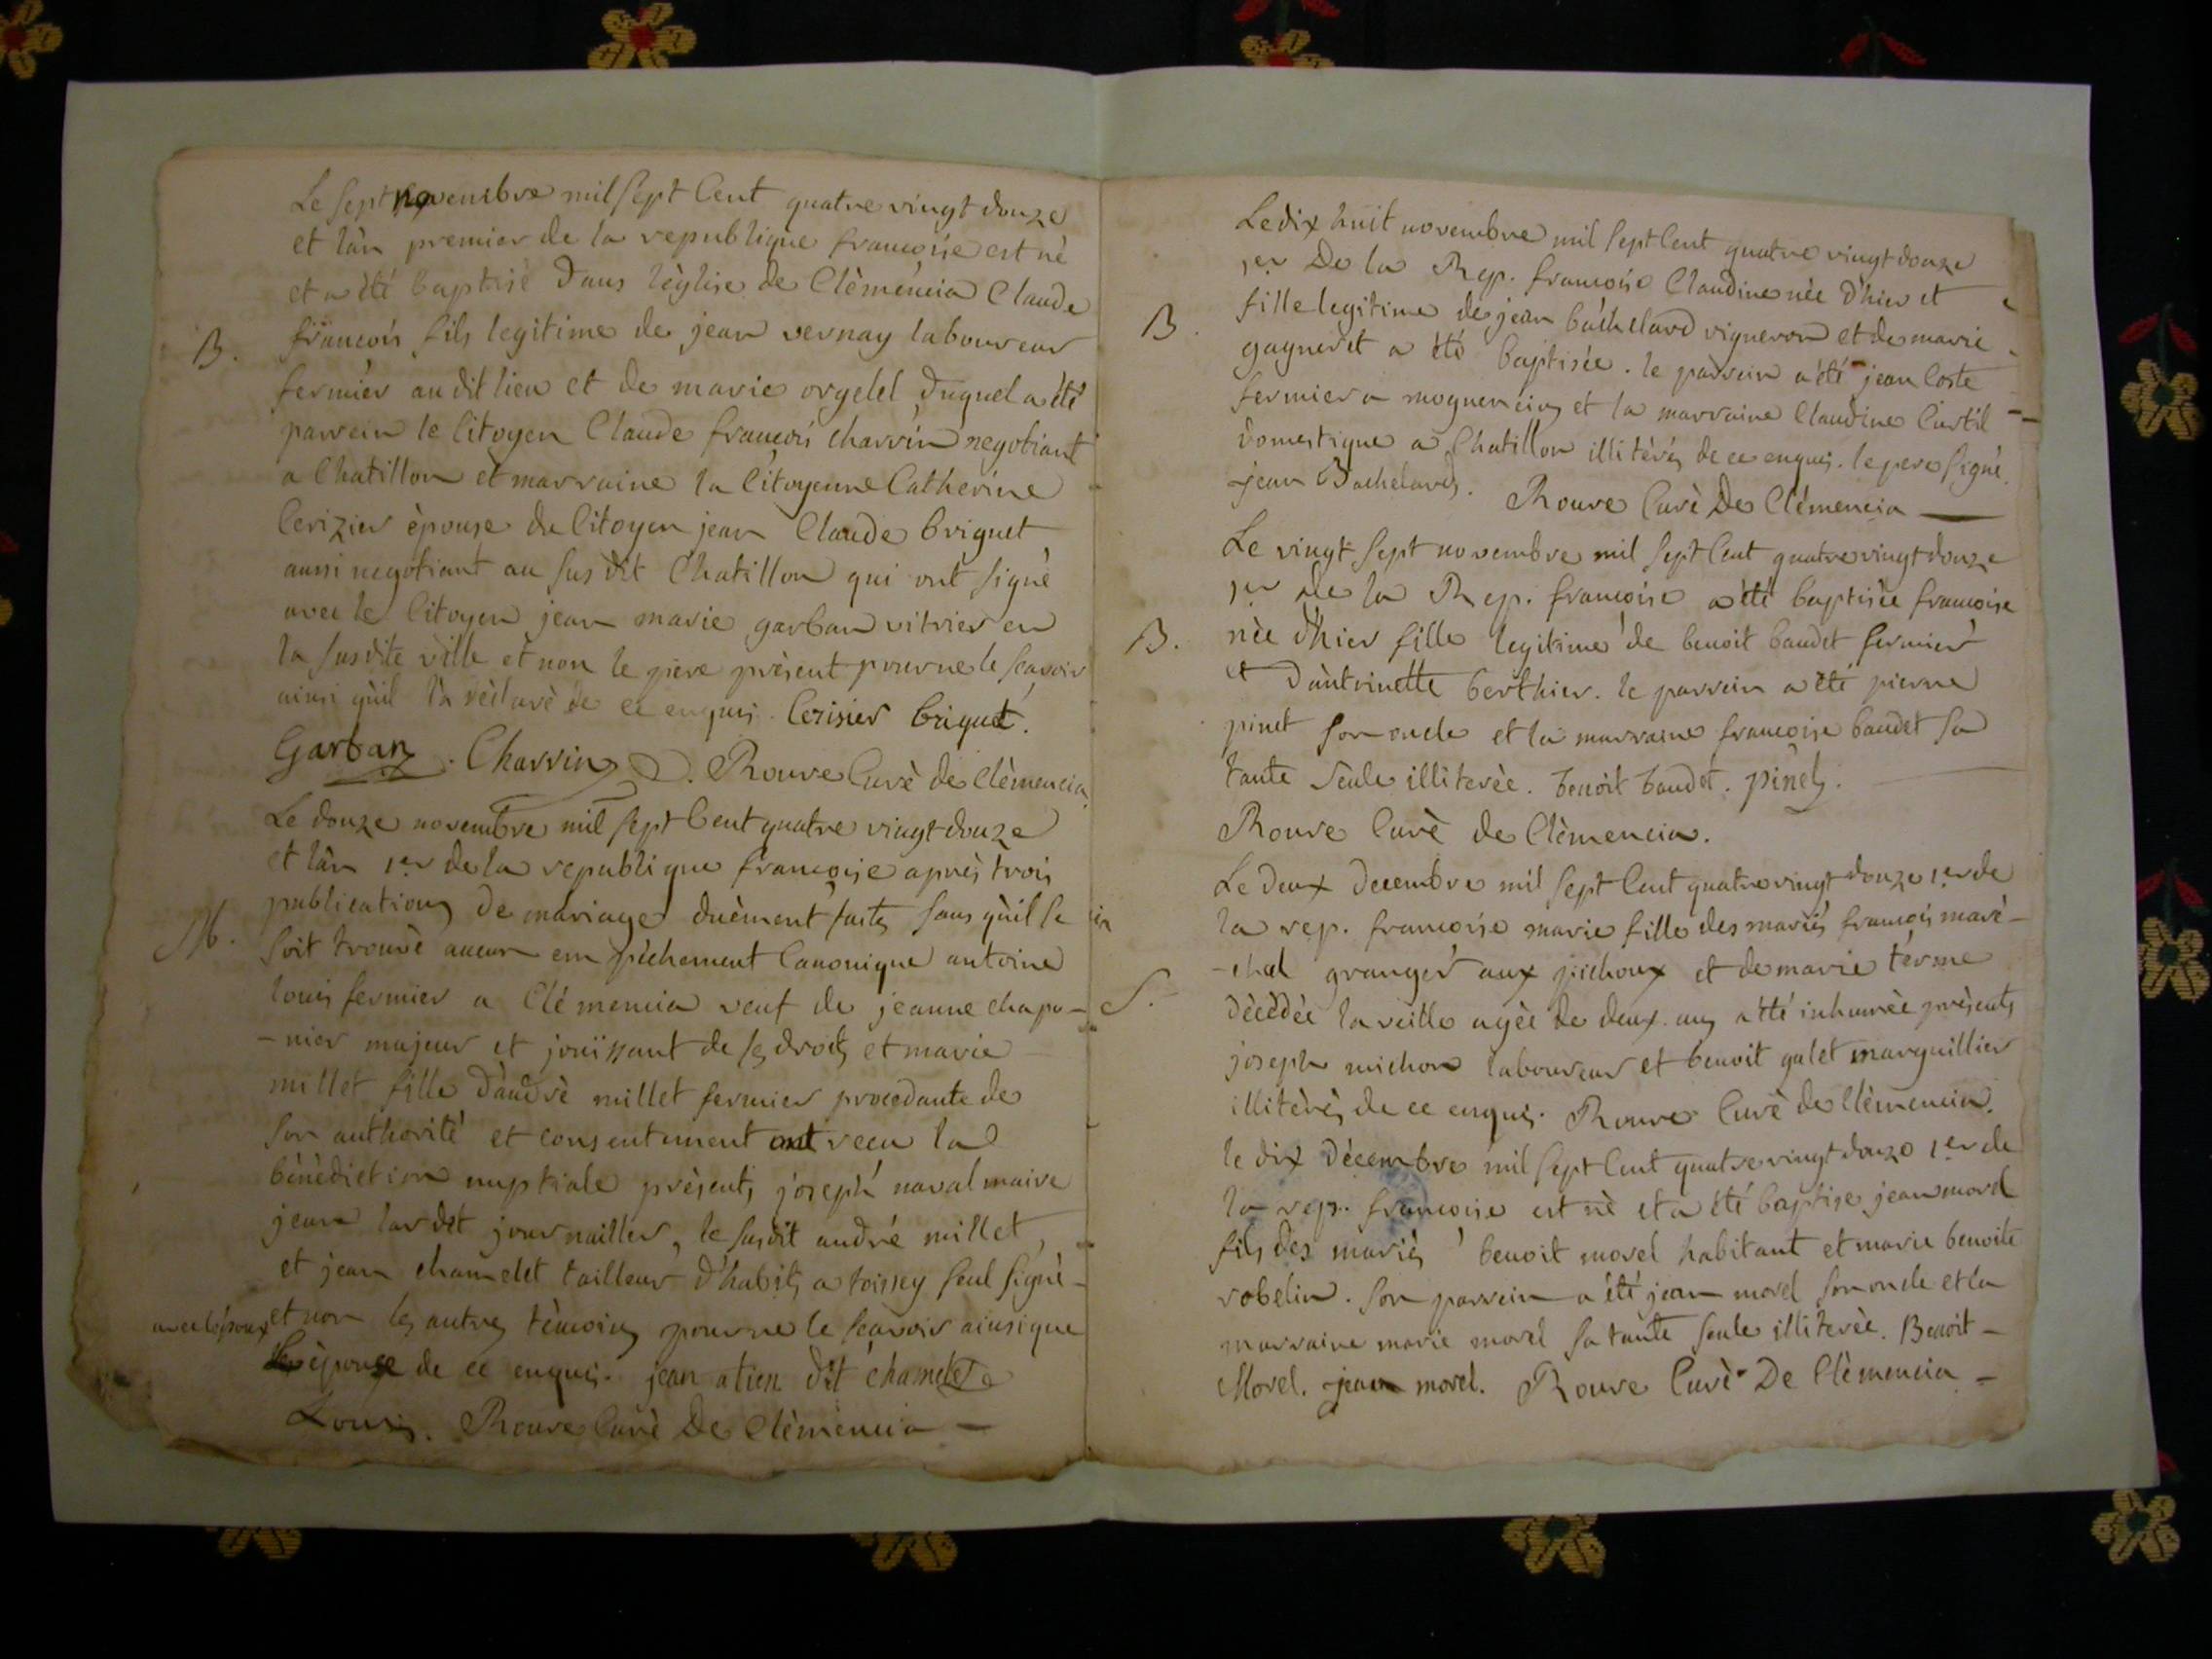 Le Sept novembre mil Sept Cent quatre vingt douze
et l'àn premier de la republique francoise est né
et a èté baptisé Dans l'èglise de Clèmencia Claude
B. francois fils legitime de jean vernay laboureur
fermier au dit lieu et de marie orgelel duquel a èté
parrein le Citoyen Claude francois charvin negotiant
a Chatillon et marraine la Citoyenne Catherine
Cerizier èpouse du Citoyen jean Claude briguet
aussi negotiant au Susdit Chatillon qui ont Signè
avec le Citoyen jean marie garban vitrier en
la Susdite ville et non le pere prèsent pour ne le Scavoir
ainsi qu'il l'a dèclarè de ce enquis. Cerisier briguet.
Garban. Charvin. Rouve Curè de Clèmencia.
Le douze novembre mil Sept Cent quatre vingt douze
et l'àn 1er de la republique francoise après trois
publications de mariage duèment faites Sans qu'il Se
M. Soit trouvè aucun empèchement Canonique antoine
louis fermier a Clémencia veuf de jeanne chapo-
-nier majeur et jouïssant de Ses droits et marie
millet fille d'andrè millet fermier procedante de
Son authorité et consentement ont recu la
bènèdiction nuptiale prèsents joseph naval maire
jean lardet journailler, le Susdit andré millet,
et jean chamelet tailleur d'habits a toissey Seul Signè-
avec l'époux et non les autres tèmoins pour ne le Scavoir ainsi que
l'èpouse de ce enquis. jean atien dit chamelet
Louis. Rouve Curè De Clèmencia -
Le dix huit novembre mil Sept Cent quatre vingt douze
1er De la Rep. francoise Claudine nèe d'hier et
B. fille legitime de jean bachelard vigneron et de marie
gagneret a été baptisée. le parrein a été jean Coste
fermier a mogneneins et la marraine Claudine Curtil
domestique a Chatillon illitèrés de ce enquis. le pere Signé.
jean Bachelard. Rouve Curè De Clémencia
Le vingt Sept novembre mil Sept Cent quatre vingt douze
1er de la Rep. francoise a èté baptisèe francoise
B. nèe d'hier fille legitime de benoit baudet fermier
et d'antoinette berthier. le parrein a èté pierre
pinet Son oncle et la marraine francoise baudet Sa
tante Seule illiterèe. benoit baudet. pinet.
Rouve Curè de Clèmencia.
Le deux decembre mil Sept Cent quatre vingt douze 1er de
la rep. francoise marie fille des mariès francois marè-
-chal granger aux pichoux et de marie terme
S. dècèdèe la veille agèe de deux ans a été inhumèe prèsents
joseph michon laboureur et benoit galet marguillier
illitèrès de ce enquis. Rouve Curè de Clèmencia.
le dix dècembre mil Sept Cent quatre vingt douze 1er de
la rep. francoise est nè et a été baptise jean morel
fils des mariès benoit morel habitant et marie benoite
robelin. Son parrein a èté jean morel Son oncle et la
marraine marie morel Sa tante Seule illiterèe. Benoit -
Morel. jean morel. Rouve Curè De Clèmencia -